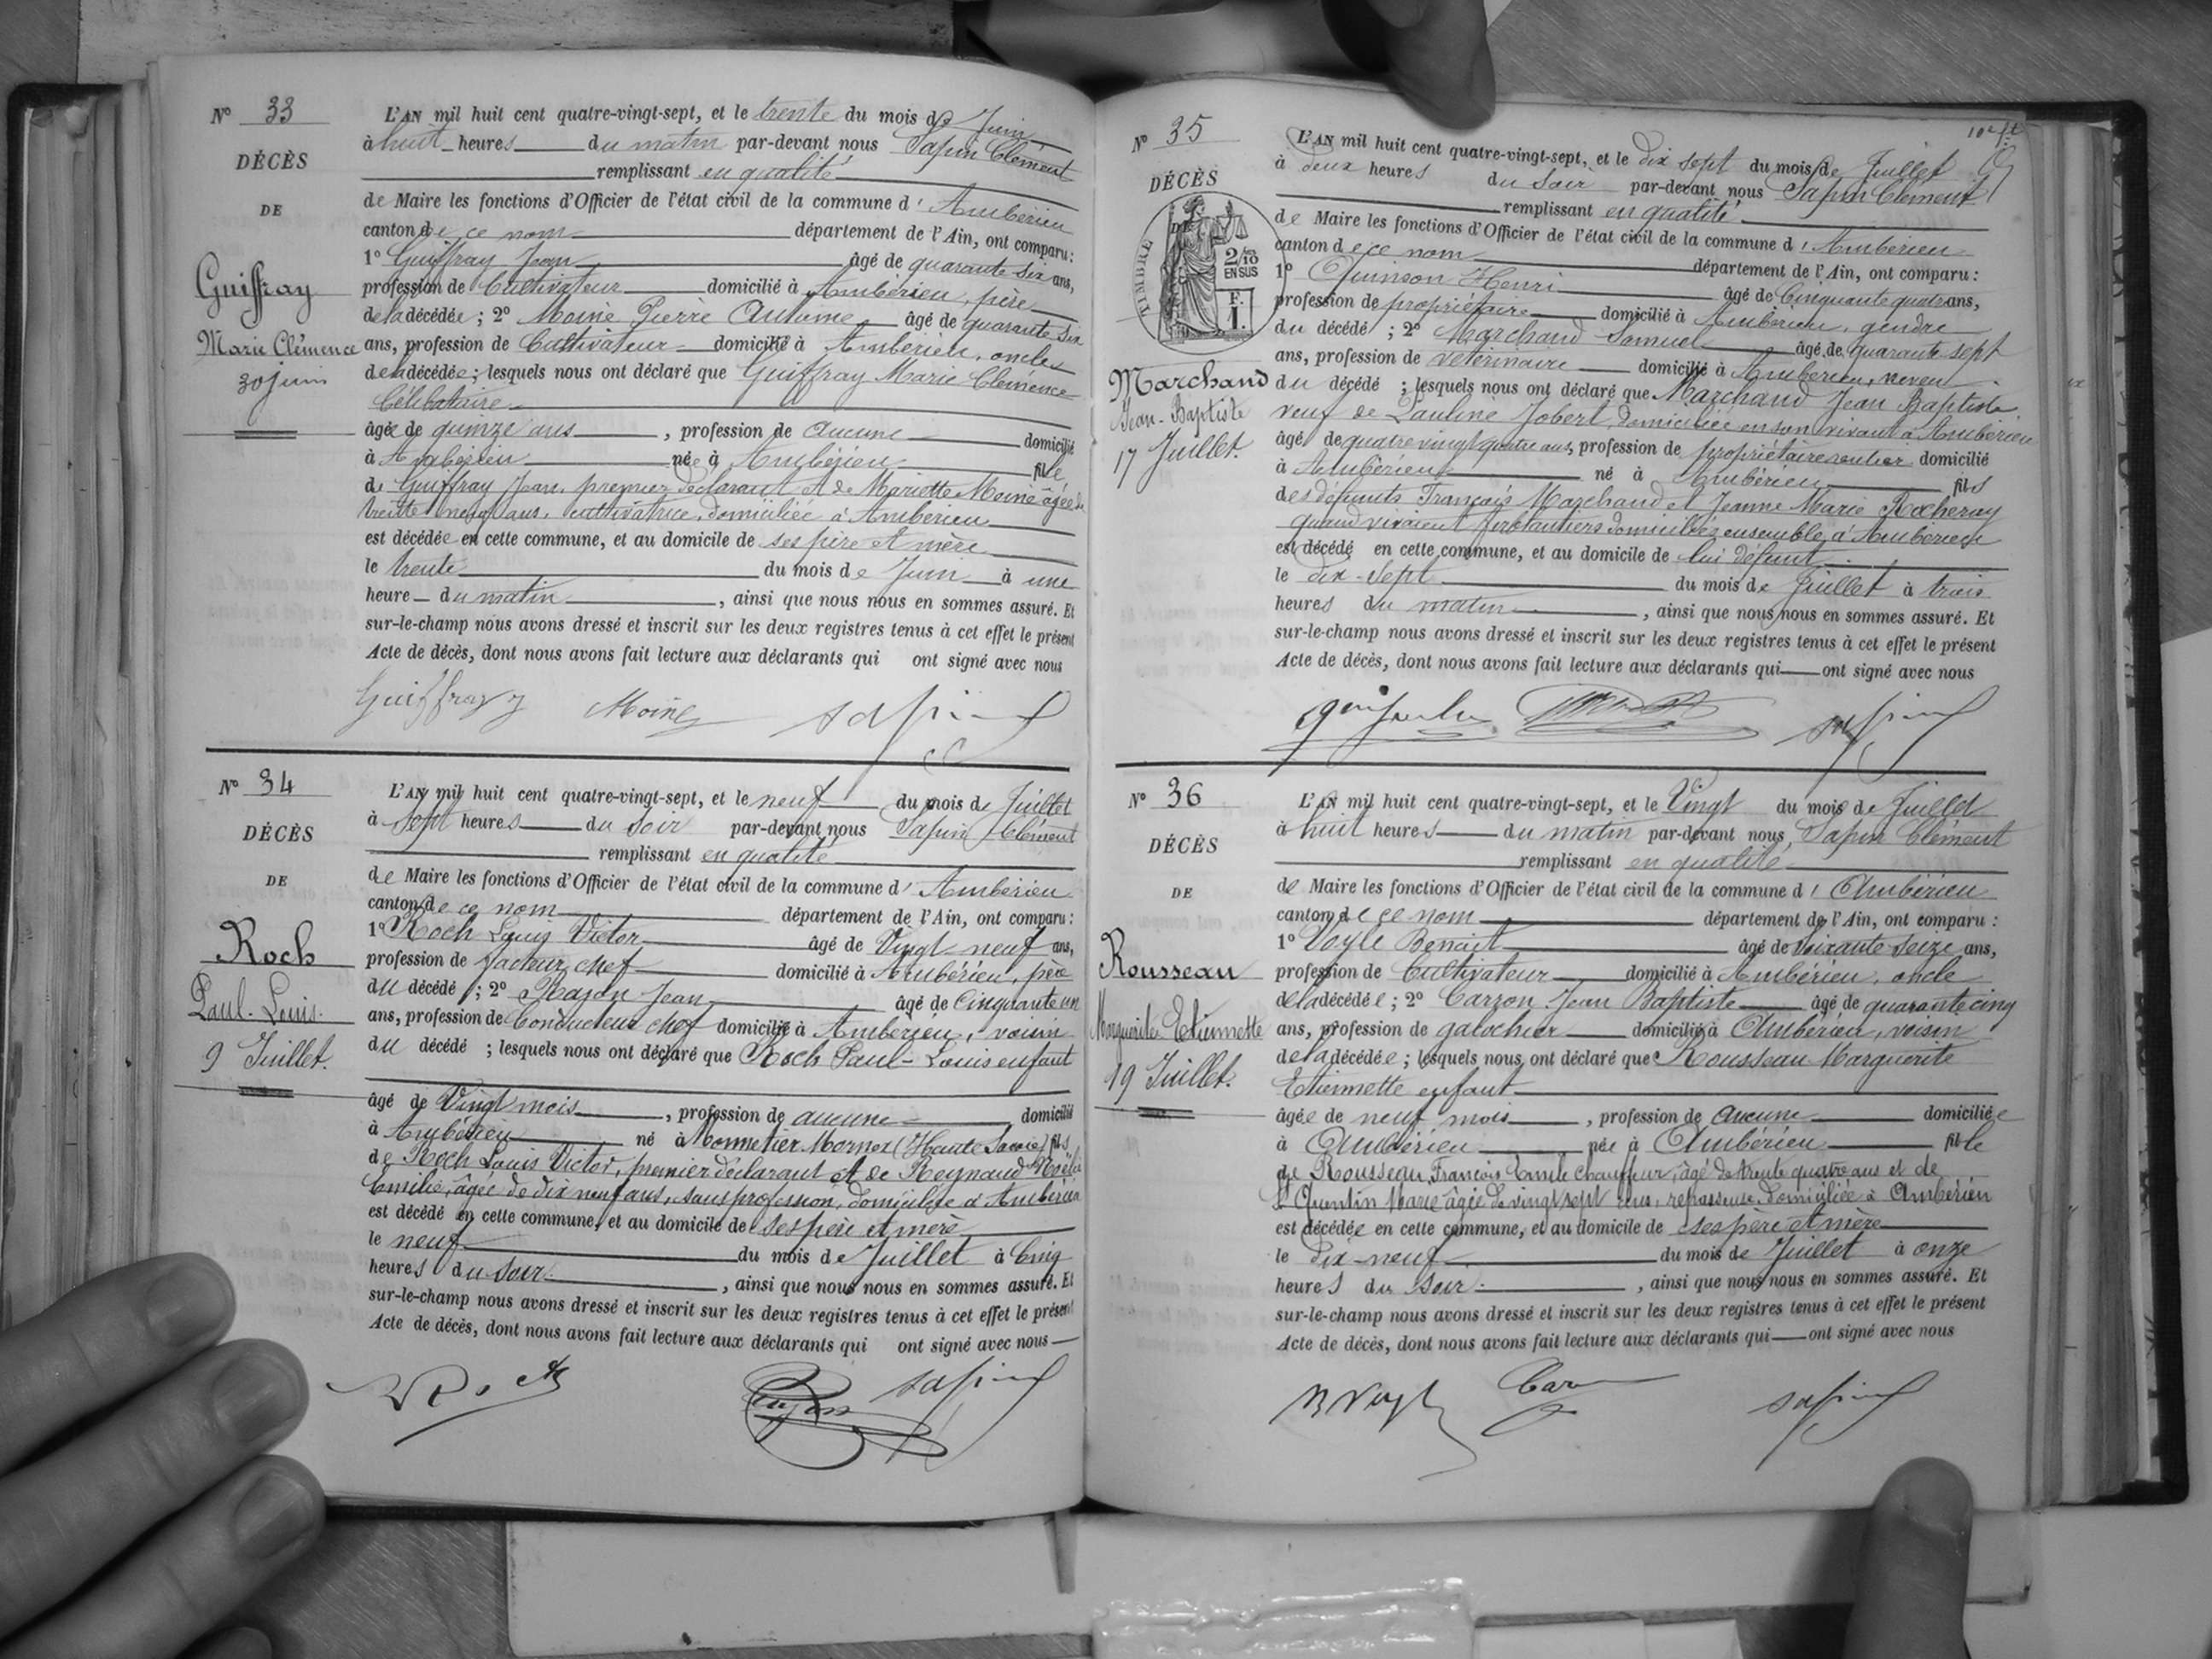 N° 33
DÉCÈS
DE
Guiffray
Marie Clémence
30 juin
L'AN mil huit cent quatre-vingt-sept, et le trente du mois de Juin
à huit heures du matin par-devant nous Sapin Clément
remplissant en qualité
de Maire les fonctions d'Officier de l'état civil de la commune d' Ambérieu
canton de ce nom département de l'Ain, ont comparu :
1° Guiffray Jean âgé de quarante six ans,
profession de Cultivateur domicilié à Ambérieu, père
de la décédée ; 2° Moine Pierre Antoine âgé de quarante six
ans, profession de Cultivateur domicilié à Ambérieu, oncle
de la décédée ; lesquels nous ont déclaré que Guiffray Marie Clémence
Célibataire
âgée de quinze ans, profession de aucune domicilié
à Ambérieu née à Ambérieu fille
de Guiffray Jean, premier déclarant et de Mariette Moine âgée de
trente neuf ans, cultivatrice, domiciliée à Ambérieu
est décédée en cette commune, et au domicile de ses père et mère
le trente du mois de Juin à une
heure du matin, ainsi que nous nous en sommes assuré. Et
sur-le-champ nous avons dressé et inscrit sur les deux registres tenus à cet effet le présent
Acte de décès, dont nous avons fait lecture aux déclarants qui ont signé avec nous
Guiffray Moine Sapin
N° 34
DÉCÈS
DE
Roch
Paul-Louis
9 Juillet.
L'AN mil huit cent quatre-vingt-sept, et le neuf du mois de Juillet
à sept heures du soir par-devant nous Sapin Clément
remplissant en qualité
de Maire les fonctions d'Officier de l'état civil de la commune d' Ambérieu
canton de ce nom département de l'Ain, ont comparu :
1° Roch Louis Victor âgé de Vingt neuf ans,
profession de facteur chef domicilié à Ambérieu, père
du décédé ; 2° Jean âgé de Cinquante un
ans, profession de Conducteur chef domicilié à Ambérieu, voisin
du décédé ; lesquels nous ont déclaré que Roch Paul-Louis enfant
âgé de Vingt mois, profession de aucune domicilié
à Ambérieu né à Monnetier Mornex (Haute Savoie) fils
de Roch Louis Victor, premier déclarant et de Reynaud
Emilie, âgée de dix neuf ans, sans profession, domiciliée à Ambérieu
est décédé en cette commune, et au domicile de ses père et mère
le neuf du mois de Juillet à Cinq
heures du soir, ainsi que nous nous en sommes assuré. Et
sur-le-champ nous avons dressé et inscrit sur les deux registres tenus à cet effet le présent
Acte de décès, dont nous avons fait lecture aux déclarants qui ont signé avec nous
Roch Sapin
10e ft
N° 35
DÉCÈS
DE
TIMBRE
2/10
EN SUS
F.
1.
Marchand
Jean-Baptiste
17 Juillet.
L'AN mil huit cent quatre-vingt-sept, et le dix sept du mois de Juillet
à deux heures du soir par-devant nous Sapin Clément
remplissant en qualité
de Maire les fonctions d'Officier de l'état civil de la commune d' Ambérieu
canton de ce nom département de l'Ain, ont comparu :
1° Quinson Henri âgé de Cinquante quatre ans,
profession de propriétaire domicilié à Ambérieu, gendre
du décédé ; 2° Marchand Samuel âgé de quarante sept
ans, profession de vétérinaire domicilié à Ambérieu, neveu
du décédé ; lesquels nous ont déclaré que Marchand Jean Baptiste
veuf de Pauline Jobert, domiciliée en son vivant à Ambérieu
âgé de quatre vingt quatre ans, profession de propriétaire rentier domicilié
à Ambérieu né à Ambérieu fils
des défunts François Marchand et Jeanne Marie Rocheray
quand vivaient ferblantiers domiciliés ensemble à Ambérieu
est décédé en cette commune, et au domicile de lui défunt
le dix-sept du mois de Juillet à trois
heures du matin, ainsi que nous nous en sommes assuré. Et
sur-le-champ nous avons dressé et inscrit sur les deux registres tenus à cet effet le présent
Acte de décès, dont nous avons fait lecture aux déclarants qui ont signé avec nous
Sapin
N° 36
DÉCÈS
DE
Rousseau
Marguerite Etiennette
19 Juillet.
L'AN mil huit cent quatre-vingt-sept, et le Vingt du mois de Juillet
à huit heures du matin par-devant nous Sapin Clément
remplissant en qualité
de Maire les fonctions d'Officier de l'état civil de la commune d' Ambérieu
canton de ce nom département de l'Ain, ont comparu :
1° Voyle Benoit âgé de soixante seize ans,
profession de Cultivateur domicilié à Ambérieu, oncle
de la décédée ; 2° Carron Jean Baptiste âgé de quarante cinq
ans, profession de galochier domicilié à Ambérieu, voisin
de la décédée ; lesquels nous ont déclaré que Rousseau Marguerite
Etiennette enfant
âgée de neuf mois, profession de aucune domiciliée
à Ambérieu née à Ambérieu fille
de Rousseau François Emile chauffeur, âgé de trente quatre ans et de
St Quentin Marie âgée de vingt sept ans, repasseuse, domiciliée à Ambérieu
est décédée en cette commune, et au domicile de ses père et mère
le dix-neuf du mois de Juillet à onze
heures du soir, ainsi que nous nous en sommes assuré. Et
sur-le-champ nous avons dressé et inscrit sur les deux registres tenus à cet effet le présent
Acte de décès, dont nous avons fait lecture aux déclarants qui ont signé avec nous
Sapin